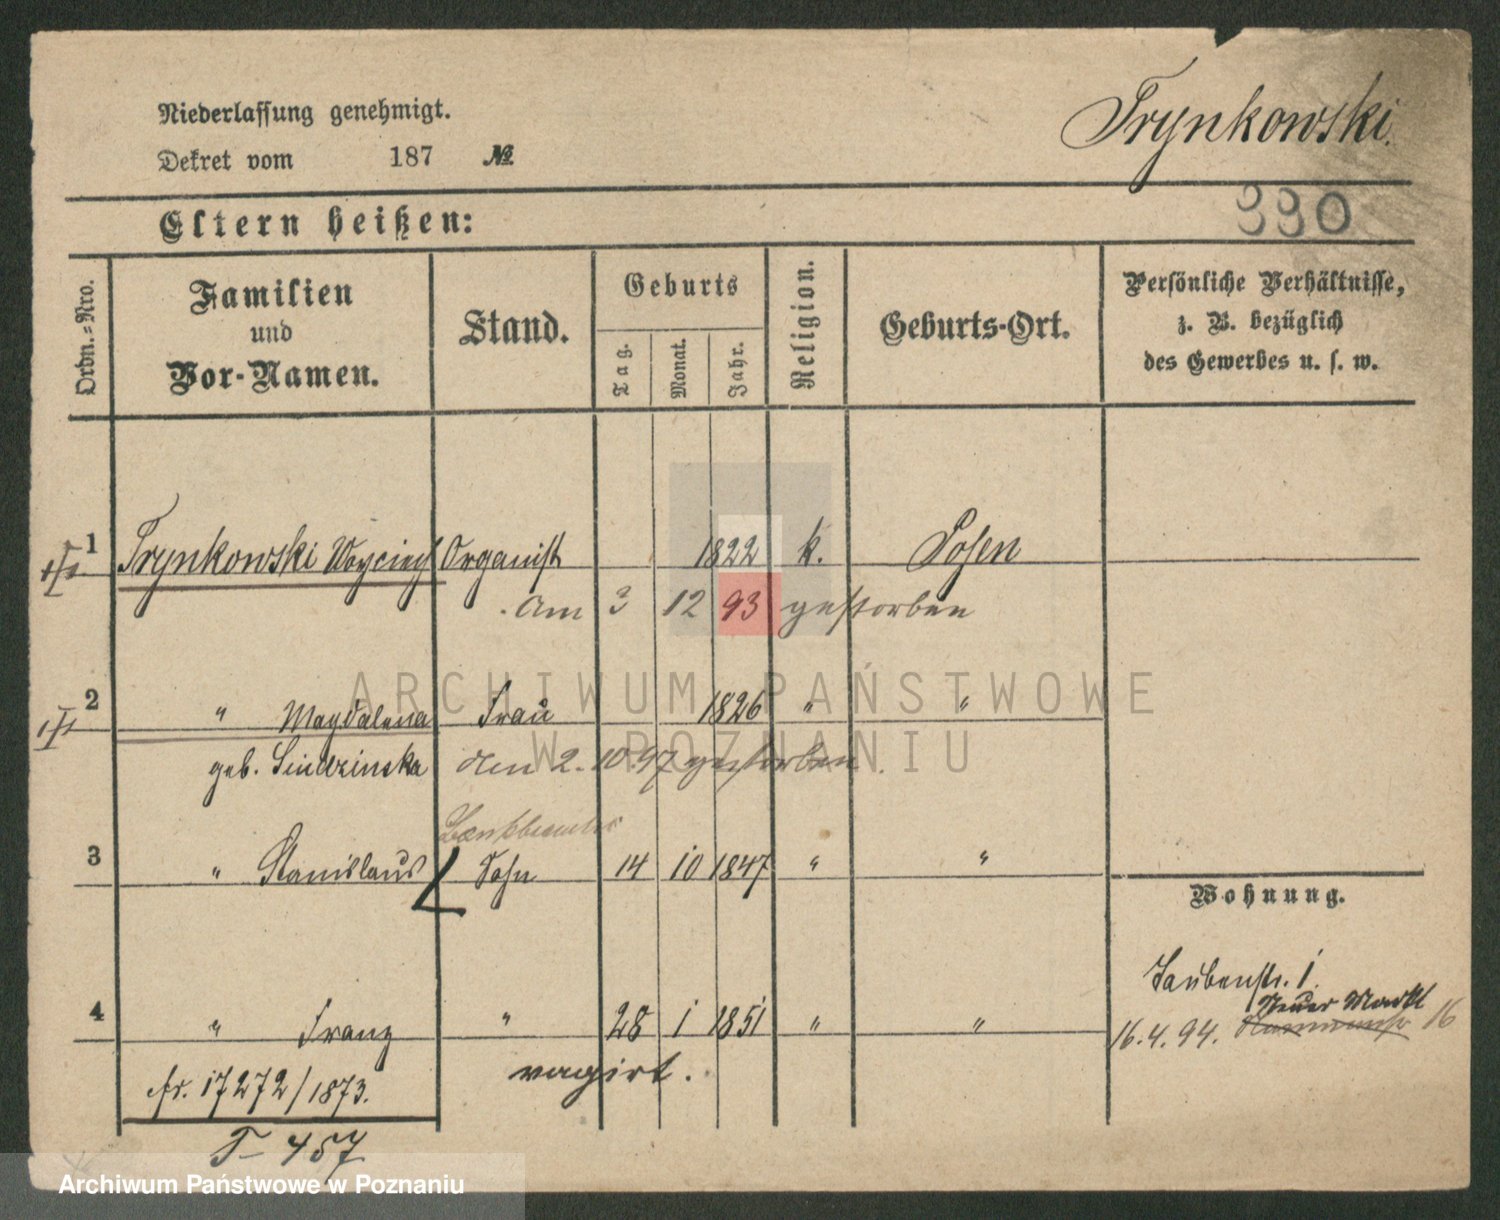 Niederlassung genehmigt.
Trynkowski.
Dekret vom 187 №
Eltern heißen:
990
Ordn.-Nro.
Familien und Vor-Namen.
Stand.
Geburts
Tag.
Monat.
Jahr.
Religion.
Geburts-Ort.
Persönliche Verhältnisse,
z. B. bezüglich
des Gewerbes u. s. w.
1 Trynkowski Woyciech Organist 1822 k. Posen
Am 3 12 93 gestorben
2 " Magdalena Frau 1826 " "
geb. den 2. 10. 97 gestorben.
3 " Stanislaus Sohn 14 10 1847 " "
Wohnung.
Taubenstr. 1.
Neuer Markt
16. 4. 94. 16
4 " Franz " 28 1 1851 " "
vagirt.
fr. 17272/1873.
T - 457
ARCHIWUM PAŃSTWOWE
W POZNANIU
Archiwum Państwowe w Poznaniu